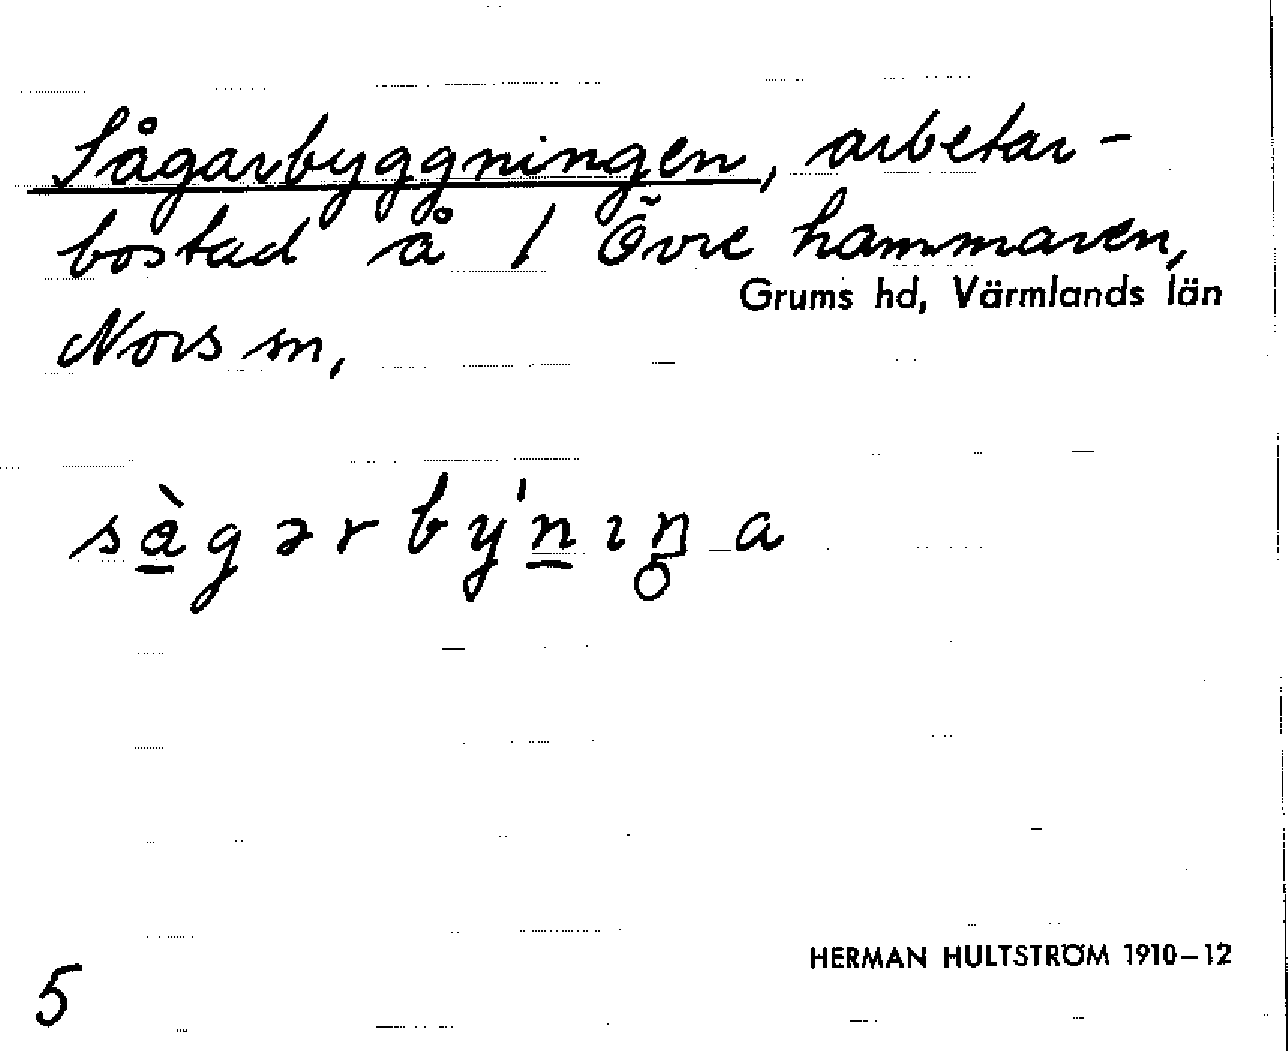 Sågarbyggningen, arbetar-
bostad å 1 Övre hammaren,
Grums hd, Värmlands län
Nors sn,
HERMAN HULTSTRÖM 1910–12
5